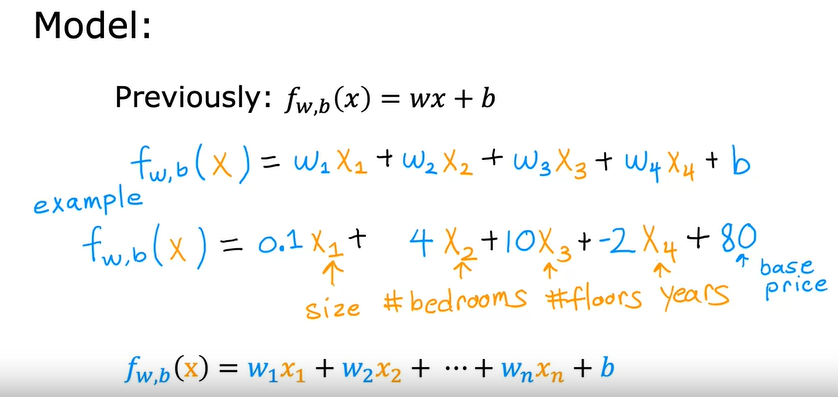 Model:
Previously: f_{w,b}(x) = wx + b
f_{w,b}(x) = w₁x₁ + w₂x₂ + w₃x₃ + w₄x₄ + b
example
f_{w,b}(x) = 0.1 x₁ + 4 x₂ + 10 x₃ + -2 x₄ + 80
↑ ↑ ↑ ↑ ↑
size #bedrooms #floors years base price
f_{w,b}(x) = w₁x₁ + w₂x₂ + ⋯ + wₙxₙ + b